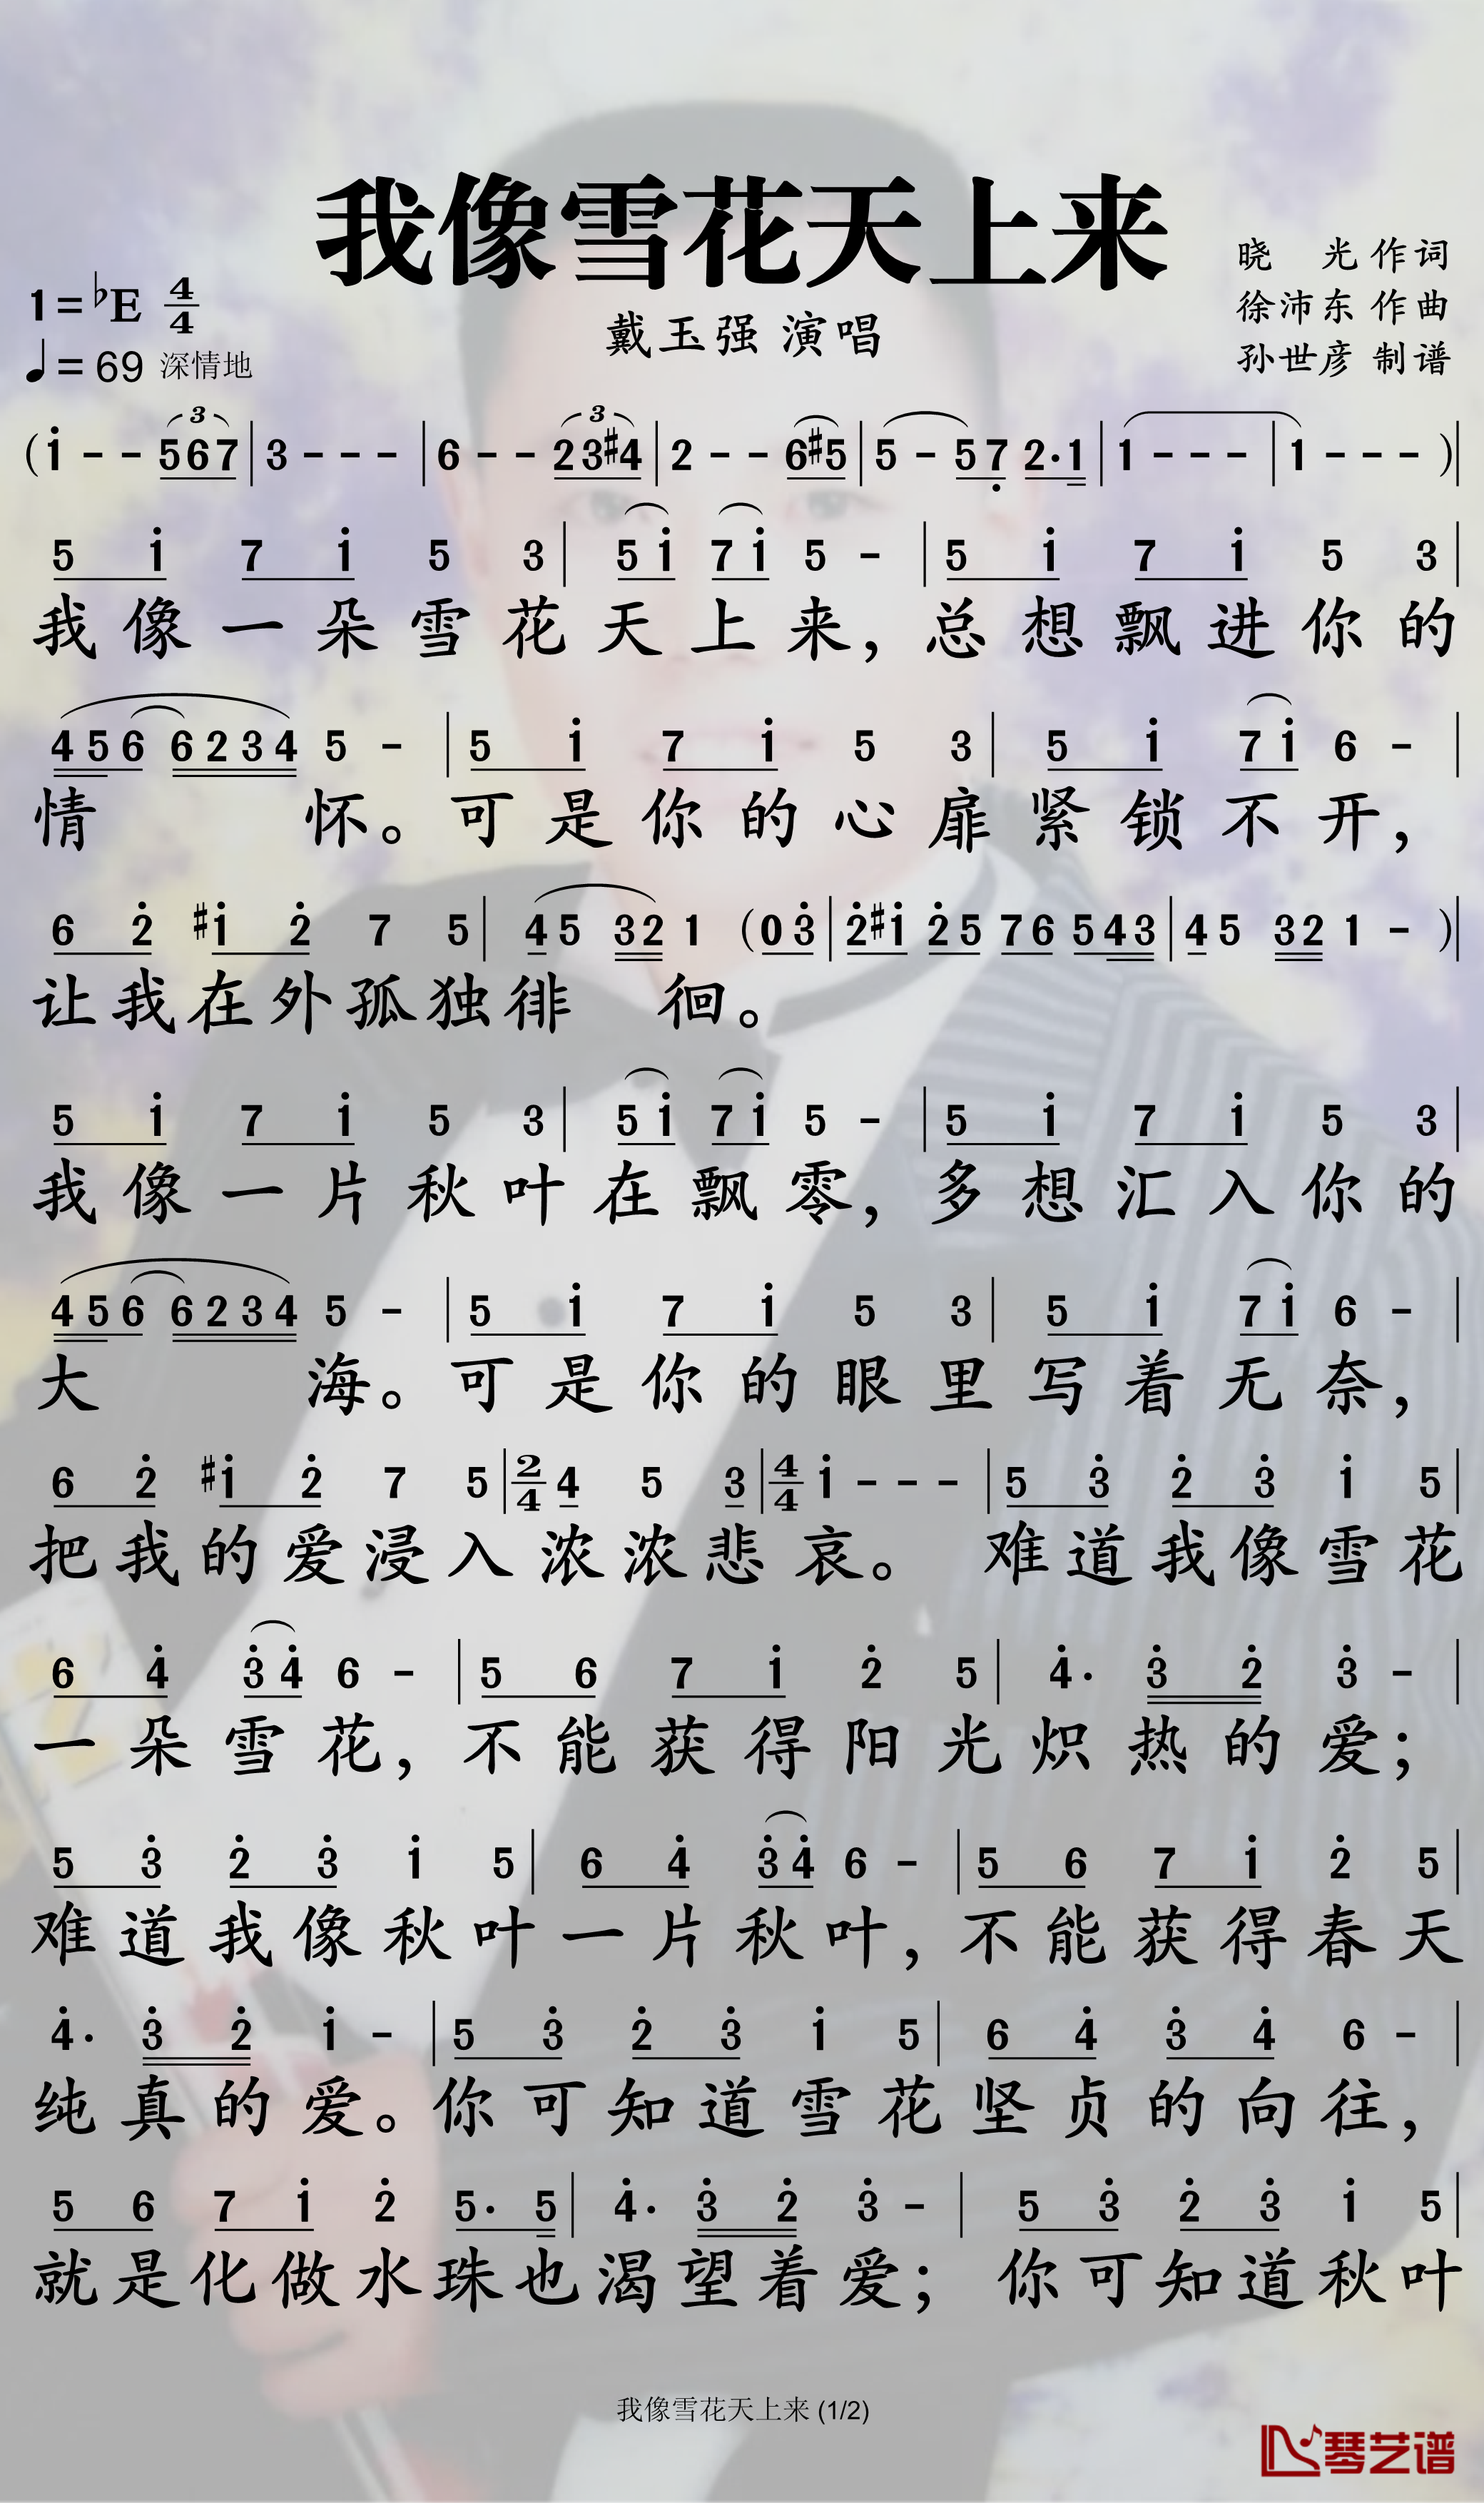 我像雪花天上来
晓 光 作词
1=♭E 4/4
徐沛东 作曲
戴玉强 演唱
♩=69 深情地
孙世彦 制谱
(i - - 567 | 3 - - - | 6 - - 23#4 | 2 - - 6#5 | 5 - 57 2·1 | 1 - - - | 1 - - - )|
5 i 7 i 5 3 | 5 i 7 i 5 - | 5 i 7 i 5 3 |
我像一朵雪花天上来，总想飘进你的
4 5 6 6 2 3 4 5 - | 5 i 7 i 5 3 | 5 i 7 i 6 - |
情 怀。可是你的心扉紧锁不开，
6 2 #i 2 7 5 | 4 5 3 2 1 (0 3 | 2 #i 2 5 7 6 5 4 3 | 4 5 3 2 1 - )|
让我在外孤独徘 徊。
5 i 7 i 5 3 | 5 i 7 i 5 - | 5 i 7 i 5 3 |
我像一片秋叶在飘零，多想汇入你的
4 5 6 6 2 3 4 5 - | 5 i 7 i 5 3 | 5 i 7 i 6 - |
大 海。可是你的眼里写着无奈，
6 2 #i 2 7 5 | 2/4 4 5 3 | 4/4 i - - - | 5 3 2 3 i 5 |
把我的爱浸入浓浓悲哀。 难道我像雪花
6 4 3 4 6 - | 5 6 7 i 2 5 | 4· 3 2 3 - |
一朵雪花，不能获得阳光炽热的爱；
5 3 2 3 i 5 | 6 4 3 4 6 - | 5 6 7 i 2 5 |
难道我像秋叶一片秋叶，不能获得春天
4· 3 2 i - | 5 3 2 3 i 5 | 6 4 3 4 6 - |
纯真的爱。你可知道雪花坚贞的向往，
5 6 7 i 2 5· 5 | 4· 3 2 3 - | 5 3 2 3 i 5 |
就是化做水珠也渴望着爱；你可知道秋叶
我像雪花天上来 (1/2)
琴艺谱